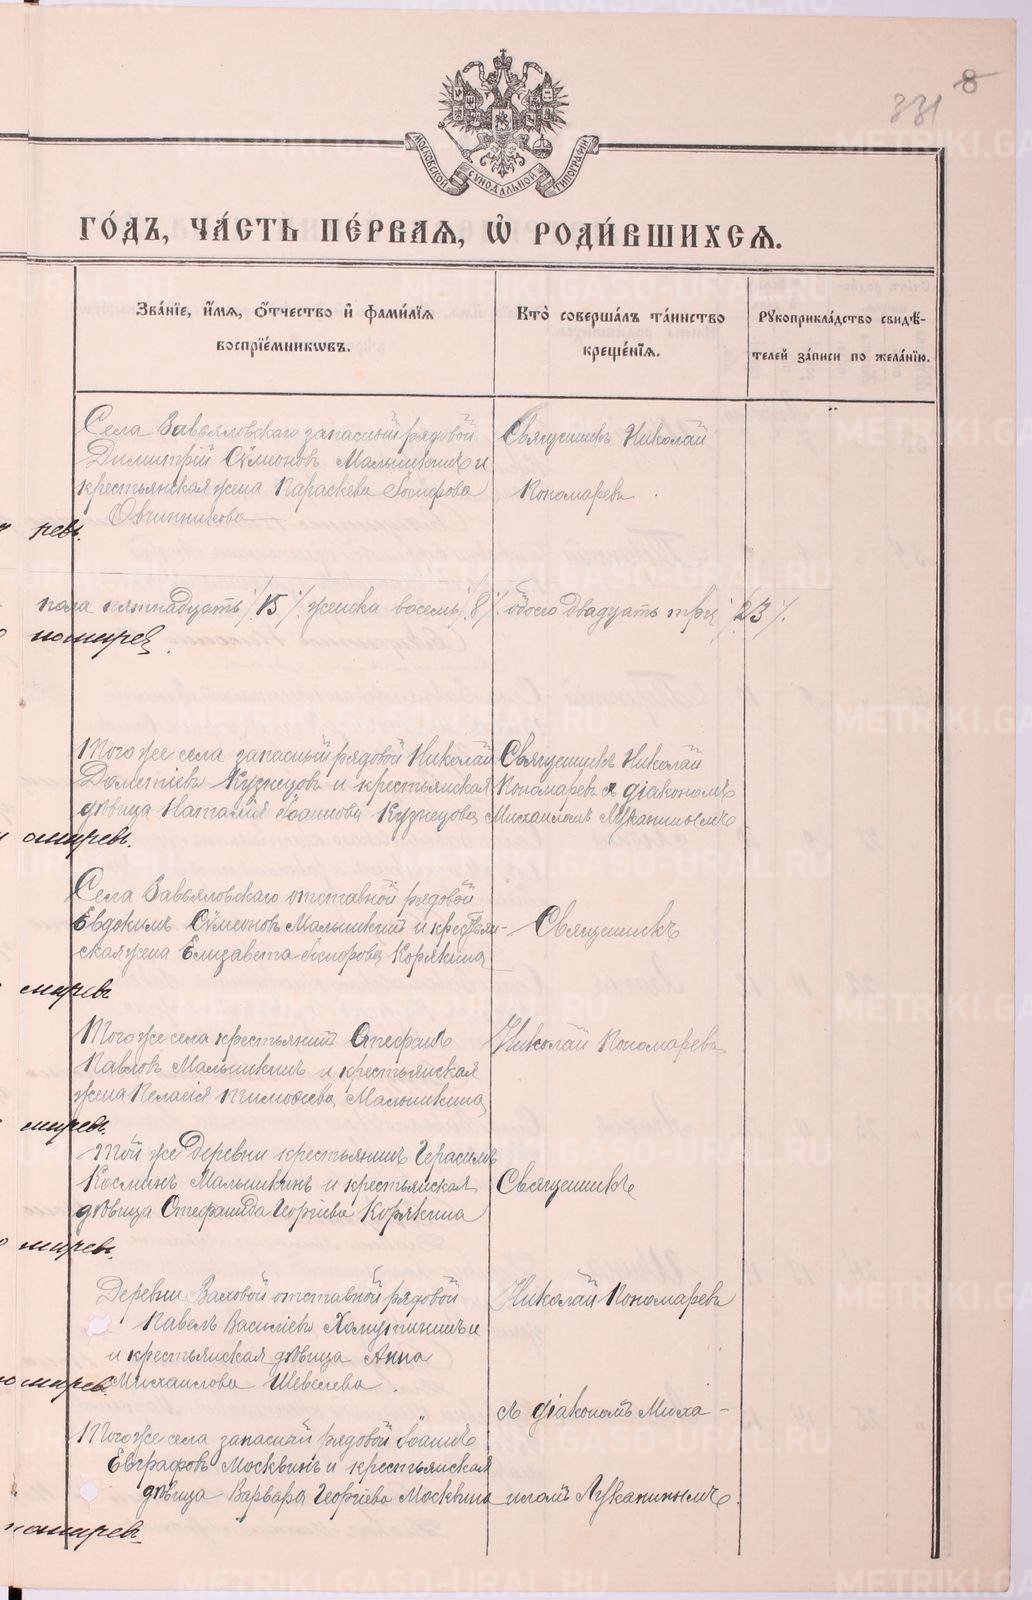 331 8
МОСКОВСКОЙ СѴНОДАЛЬНОЙ ТИПОГРАФІИ
ГО́ДЪ, ЧА́СТЬ ПЕ́РВАѦ, Ѡ҆ РОДИ́ВШИХСѦ.
Зва́нїе, и҆́мѧ, ѻ҆́тчество и҆ фами́лїѧ
воспрїе́мникѡвъ.
Кто̀ соверша́лъ та́инство
креще́нїѧ.
Рꙋкоприкла́дство свидѣ́-
телей за́писи по жела́нїю.
Села Завьяловскаго запасный рядовой
Димитрій Сѵмеоновъ Малышкинъ и
крестьянская жена Параскева Іосифова
Овчинникова
Священникъ Николай
Пономаревъ.
ревъ.
пола пятнадцать /15/. женска восемь /8/. обоего двадцать три /23/.
Того же села запасный рядовой Николай
Дометіевъ Кузнецовъ и крестьянская
дѣвица Наталія Іоаннова Кузнецова
Священникъ Николай
Пономаревъ съ діакономъ
Михаиломъ Луканинымъ
Села Завьяловскаго отставной рядовой
Евдокимъ Сѵмеоновъ Малышкинъ и крестьян-
ская жена Елизавета Іосифова Корякина
Священникъ
Того же села крестьянинъ Стефанъ
Павловъ Малышкинъ и крестьянская
жена Пелагія Тимоѳеева Малышкина
Николай Пономаревъ
Той же деревни крестьянинъ Герасимъ
Косминъ Малышкинъ и крестьянская
дѣвица Стефанида Георгіева Корякина
Священникъ
Деревни отставной рядовой
Павелъ Василіевъ и
и крестьянская дѣвица Анна
Михаилова Шевелева.
Николай Пономаревъ
съ діакономъ Миха-
Того же села запасный рядовой Іоаннъ
Евграфовъ Москвинъ и крестьянская
дѣвица Варвара Георгіева Москвина
иломъ Луканинымъ.
METRIKI.GASO-URAL.RU